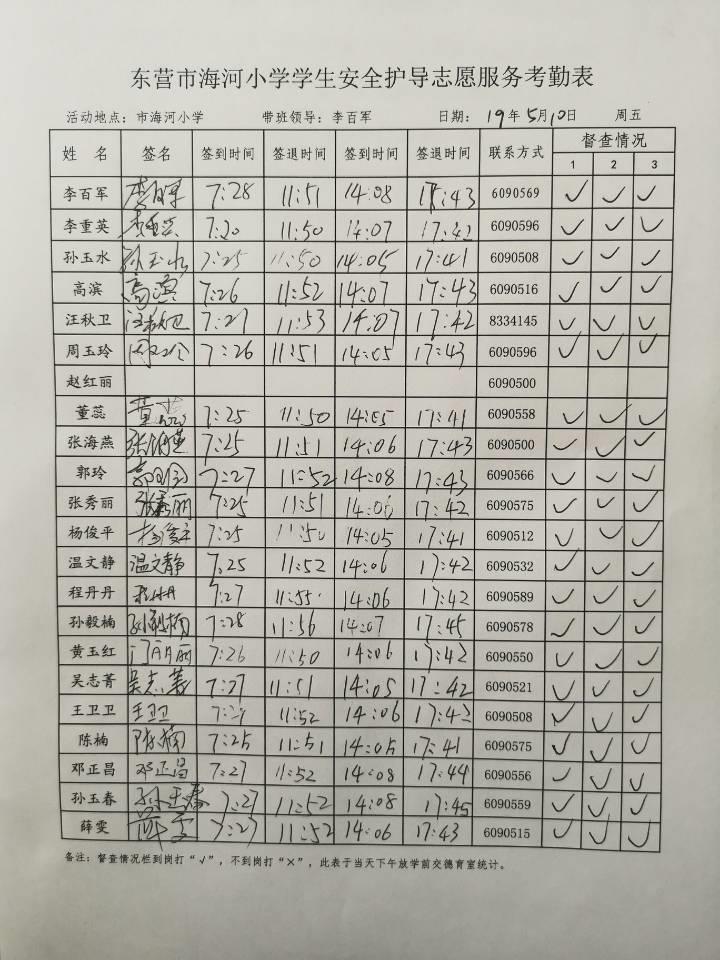 东营市海河小学学生安全护导志愿服务考勤表
活动地点：市海河小学 带班领导：李百军 日期： 19年5月10日 周五
姓 名 签名 签到时间 签退时间 签到时间 签退时间 联系方式 督查情况
1 2 3
李百军 李百军 7:28 11:51 14:08 17:43 6090569 ✓ ✓ ✓
李重英 李重英 7:20 11:50 14:07 17:42 6090596 ✓ ✓ ✓
孙玉水 孙玉水 7:25 11:50 14:05 17:41 6090508 ✓ ✓ ✓
高滨 高滨 7:26 11:52 14:07 17:43 6090516 ✓ ✓ ✓
汪秋卫 汪秋卫 7:27 11:53 14:07 17:42 8334145 ✓ ✓ ✓
周玉玲 周玉玲 7:26 11:51 14:05 17:43 6090596 ✓ ✓ ✓
赵红丽 6090500
董蕊 董蕊 7:25 11:50 14:05 17:41 6090558 ✓ ✓ ✓
张海燕 张海燕 7:25 11:51 14:06 17:43 6090500 ✓ ✓ ✓
郭玲 郭玲 7:27 11:52 14:08 17:43 6090566 ✓ ✓ ✓
张秀丽 张秀丽 7:25 11:51 14:06 17:42 6090575 ✓ ✓ ✓
杨俊平 7:25 11:50 14:05 17:41 6090512 ✓ ✓ ✓
温文静 温文静 7:25 11:52 14:06 17:42 6090532 ✓ ✓ ✓
程丹丹 程丹丹 7:27 11:55 14:06 17:42 6090589 ✓ ✓ ✓
孙毅楠 孙毅楠 7:28 11:56 14:07 17:45 6090578 ✓ ✓ ✓
黄玉红 7:26 11:50 14:06 17:42 6090550 ✓ ✓ ✓
吴志菁 吴志菁 7:27 11:51 14:05 17:42 6090521 ✓ ✓ ✓
王卫卫 王卫卫 11:52 14:06 17:42 6090508 ✓ ✓ ✓
陈楠 陈楠 7:25 11:51 14:05 17:41 6090575 ✓ ✓ ✓
邓正昌 邓正昌 7:27 11:52 14:08 17:44 6090556 ✓ ✓ ✓
孙玉春 孙玉春 7:27 11:52 14:08 17:45 6090559 ✓ ✓ ✓
薛雯 薛雯 7:27 11:52 14:06 17:43 6090515 ✓ ✓ ✓
备注：督查情况栏到岗打“√”，不到岗打“×”，此表于当天下午放学前交德育室统计。